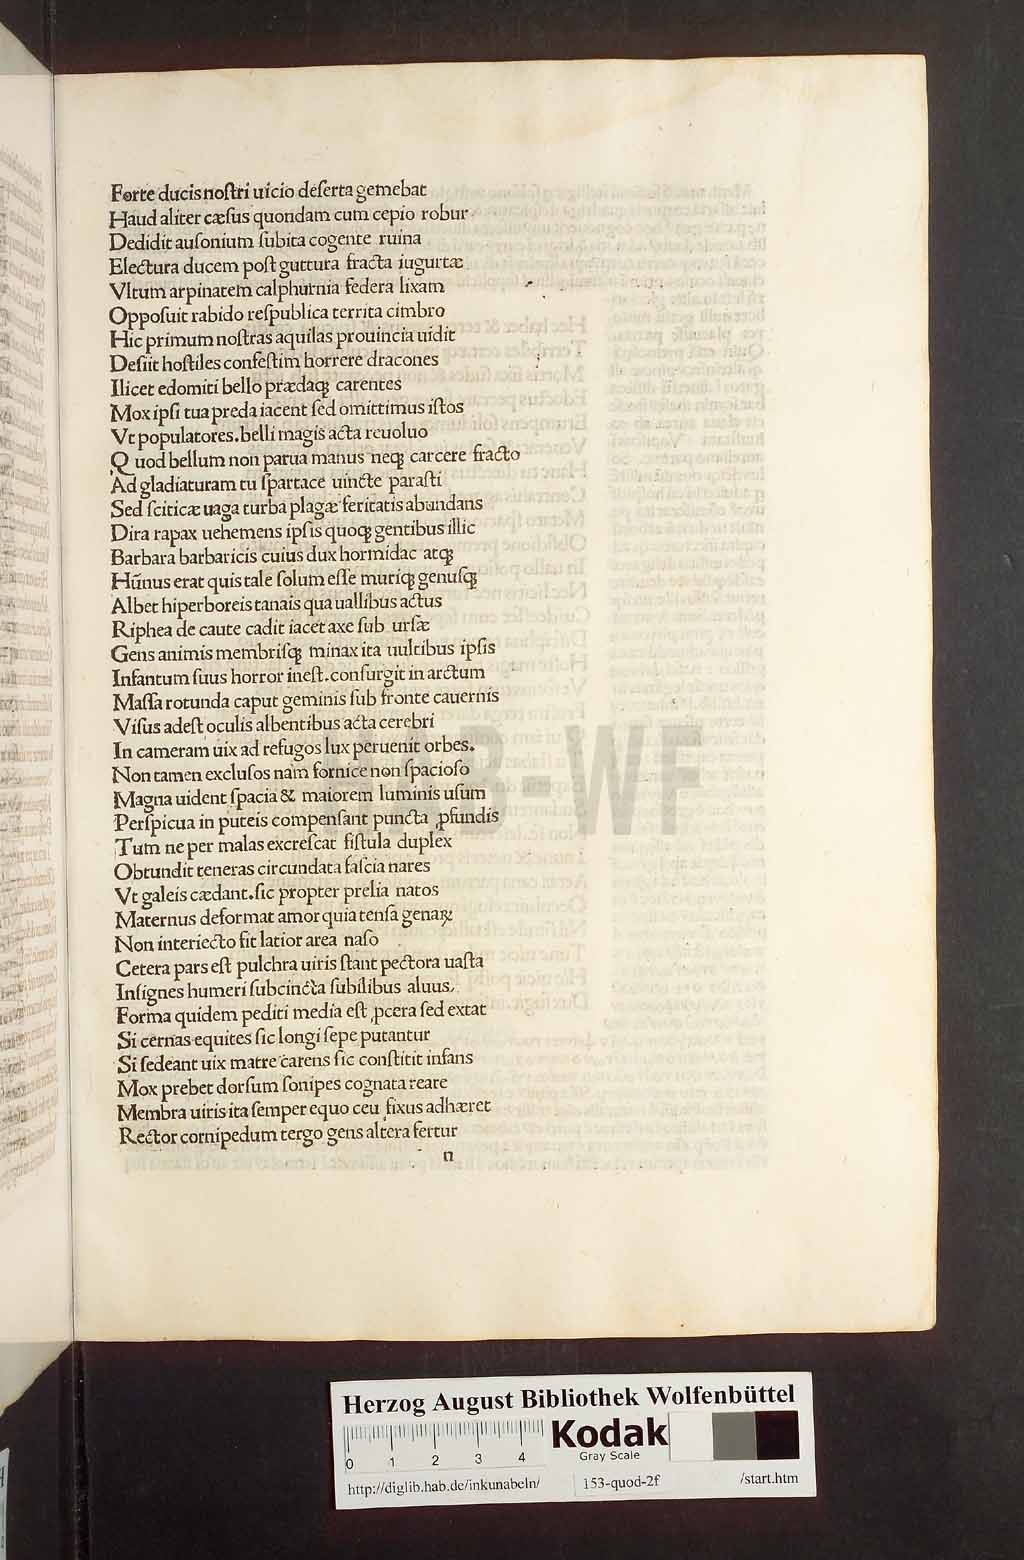 Forte ducis noſtri uicio deſerta gemebat
Haud aliter cæſus quondam cum cepio robur
Dedidit auſonium ſubita cogente ruina
Electura ducem poſt guttura fracta iugurtæ
Vltum arpinatem calphurnia federa lixam
Oppoſuit rabido reſpublica territa cimbro
Hic primum noſtras aquilas prouincia uidit
Deſiit hoſtiles confeſtim horrere dracones
Ilicet edomiti bello prædaqꝫ carentes
Mox ipſi tua preda iacent ſed omittimus iſtos
Vt populatores. belli magis acta reuoluo
Quod bellum non parua manus neqꝫ carcere fracto
Ad gladiaturam tu ſpartace uincte paraſti
Sed ſciticæ uaga turba plagæ feritatis abundans
Dira rapax uehemens ipſis quoqꝫ gentibus illic
Barbara barbaricis cuius dux hormidac atqꝫ
Hũnus erat quis tale ſolum eſſe muriqꝫ genuſqꝫ
Albet hiperboreis tanais qua uallibus actus
Riphea de caute cadit iacet axe ſub urſæ
Gens animis membriſqꝫ minax ita uultibus ipſis
Infantum ſuus horror ineſt. conſurgit in arctum
Maſſa rotunda caput geminis ſub fronte cauernis
Viſus adeſt oculis albentibus acta cerebri
In cameram uix ad refugos lux peruenit orbes.
Non tamen excluſos nam fornice non ſpacioſo
Magna uident ſpacia & maiorem luminis uſum
Perſpicua in puteis compenſant puncta ꝓfundis
Tum ne per malas excreſcat fiſtula duplex
Obtundit teneras circundata faſcia nares
Vt galeis cædant. ſic propter prelia natos
Maternus deformat amor quia tenſa genaꝝ
Non interiecto fit latior area naſo
Cetera pars eſt pulchra uiris ſtant pectora uaſta
Inſignes humeri ſubcincta ſubilibus aluus.
Forma quidem pediti media eſt ꝓcera ſed extat
Si cernas equites ſic longi ſepe putantur
Si ſedeant uix matre carens ſic conſtitit infans
Mox prebet dorſum ſonipes cognata reare
Membra uiris ita ſemper equo ceu fixus adhæret
Rector cornipedum tergo gens altera fertur
n
HAB-WF
Herzog August Bibliothek Wolfenbüttel
0 1 2 3 4
Kodak
Gray Scale
http://diglib.hab.de/inkunabeln/ 153-quod-2f /start.htm